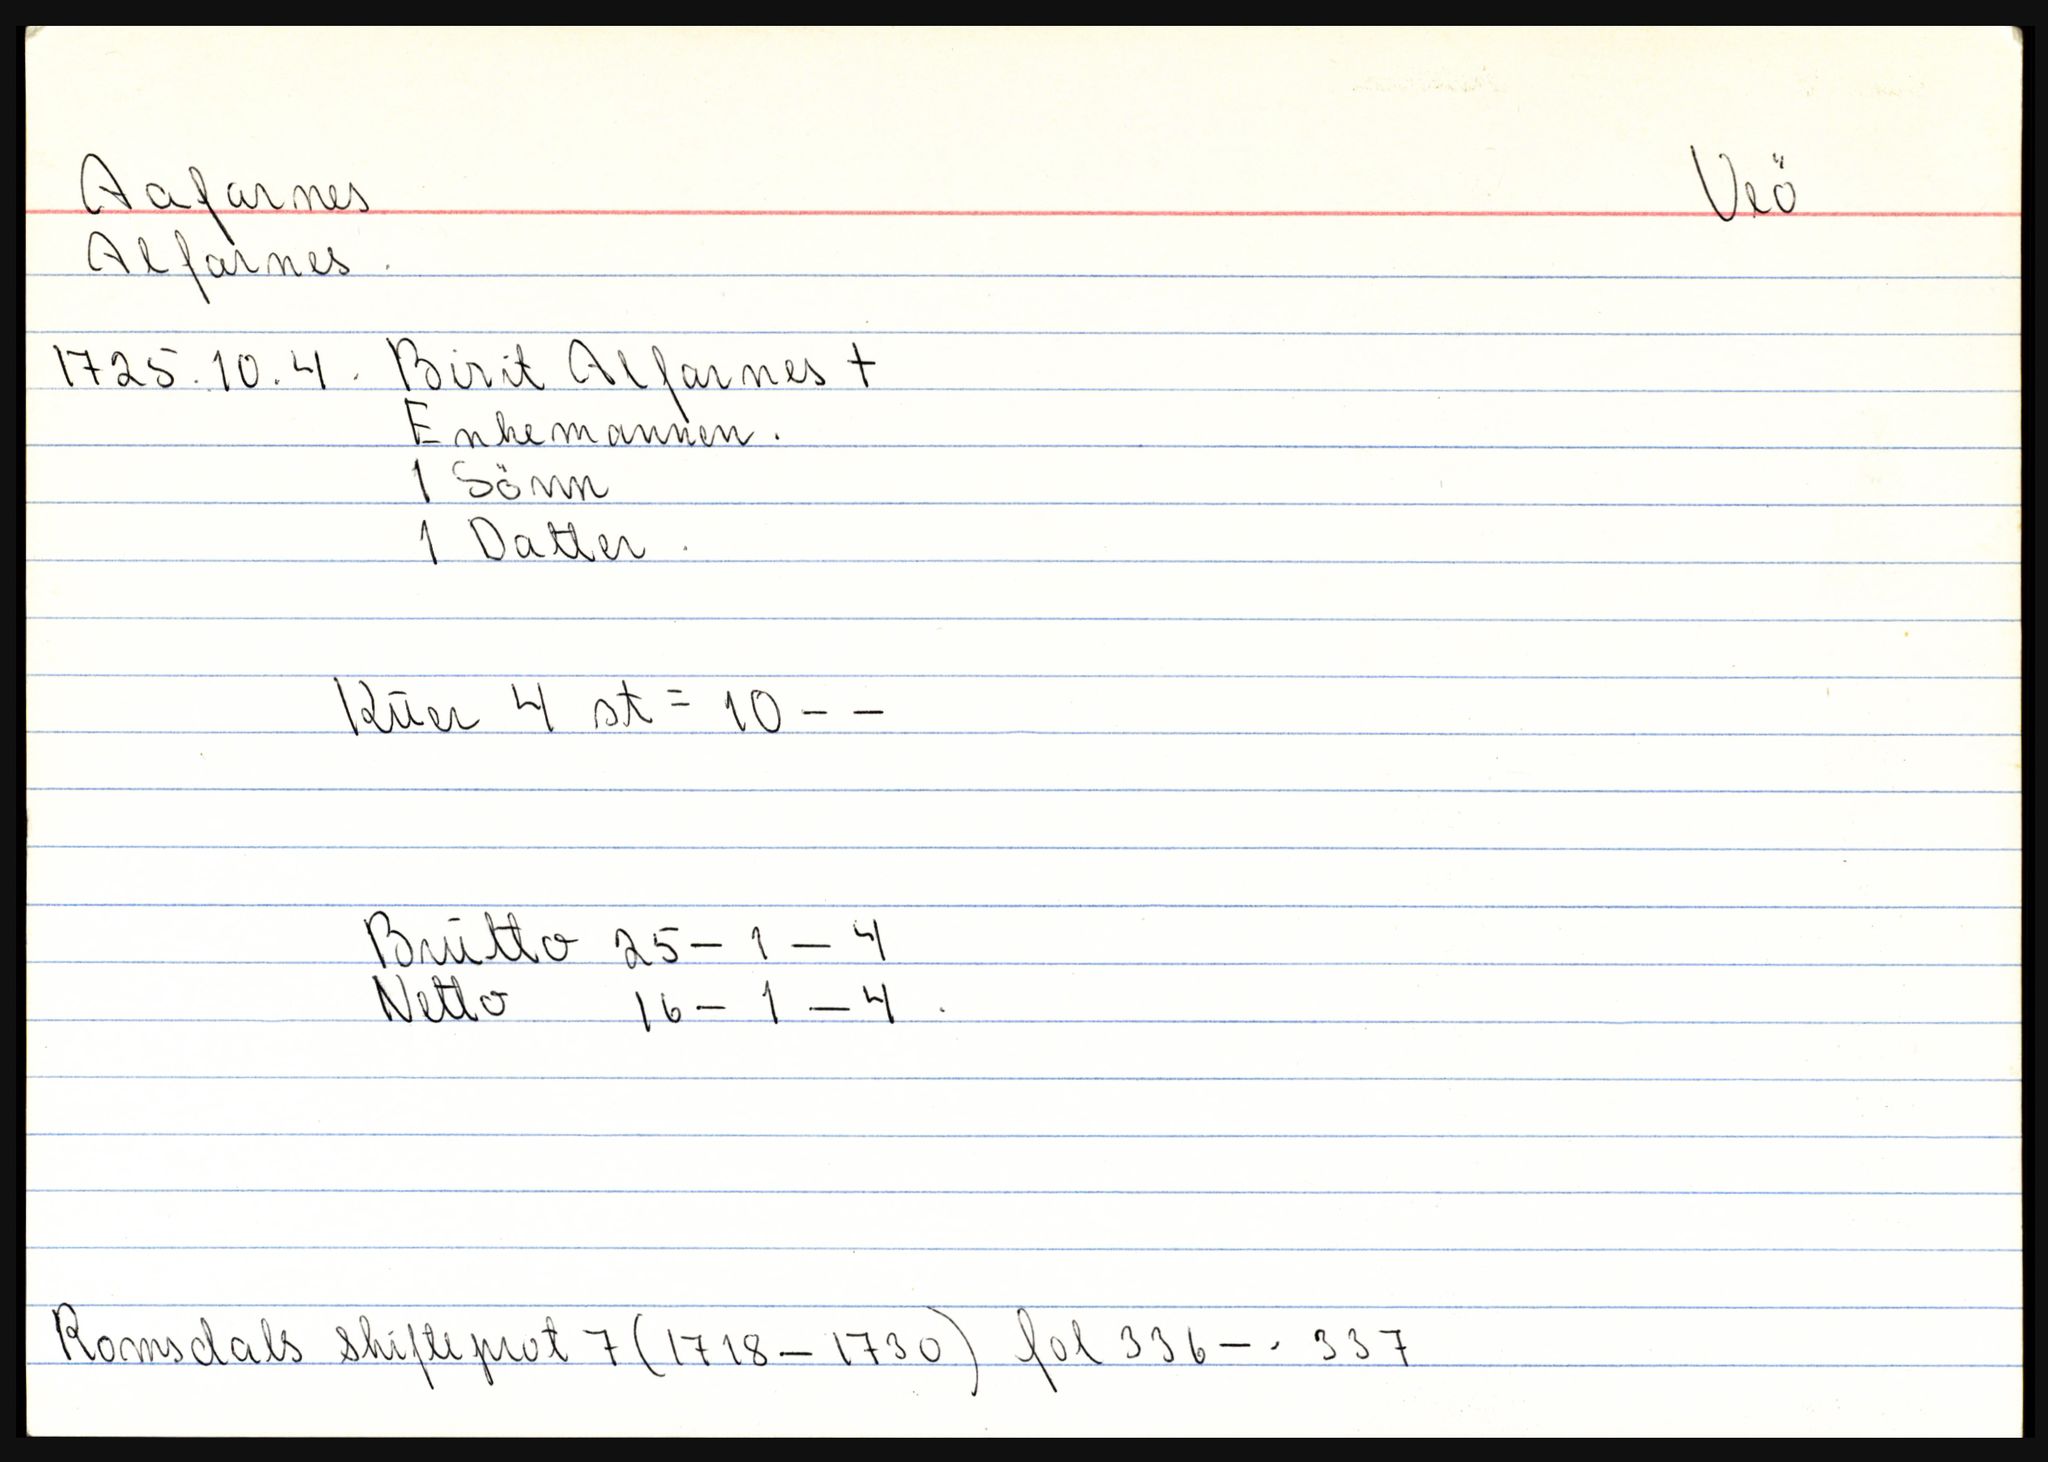 Aafarnes Veö
Alfarnes.
1725.10.4. Birit Alfarnes +
Enkemannen.
1 Sönn
1 Datter.
Kūer 4 st = 10 - -
Brūtto 25 - 1 - 4
Netto 16 - 1 - 4.
Romsdals skifteprot 7 (1718 - 1730) fol 336 - . 337